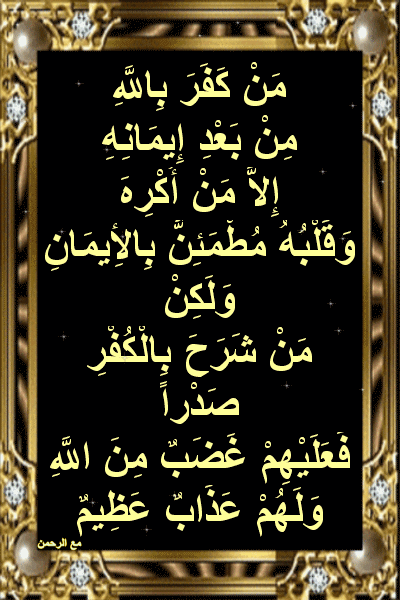 مَنْ كَفَرَ بِاللَّهِ
مِنْ بَعْدِ إِيمَانِهِ
إِلاَّ مَنْ أُكْرِهَ
وَقَلْبُهُ مُطْمَئِنٌّ بِالْأِيمَانِ
وَلَكِنْ
مَنْ شَرَحَ بِالْكُفْرِ
صَدْراً
فَعَلَيْهِمْ غَضَبٌ مِنَ اللَّهِ
وَلَهُمْ عَذَابٌ عَظِيمٌ
مع الرحمن